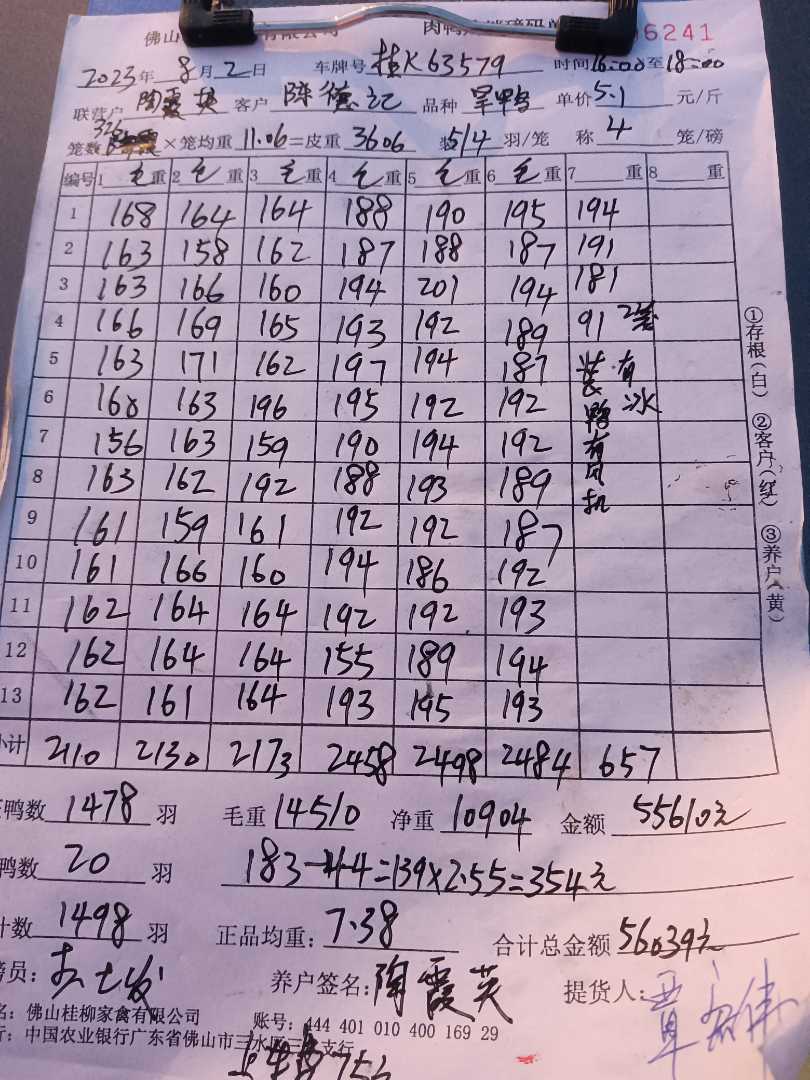 佛山 有限公司 肉鸭 磅码单 06241
2023年8月2日 车牌号 桂K63579 时间16:00至18:00
联营户 陶霞英 客户 陈德记 品种 旱鸭 单价5.1 元/斤
笼数 326 ×笼均重 11.06=皮重 3606 装5/4 羽/笼 称 4 笼/磅
编号 1 毛重 2 毛重 3 毛重 4 毛重 5 毛重 6 毛重 7 重 8 重
1 168 164 164 188 190 195 194
2 163 158 162 187 188 187 191
3 163 166 160 194 201 194 181
4 166 169 165 193 192 189 91 2笼
5 163 171 162 197 194 187
6 168 163 196 195 192 192
7 156 163 159 190 194 192
8 163 162 192 188 193 189
9 161 159 161 192 192 187
10 161 166 160 194 186 192
11 162 164 164 192 192 193
12 162 164 164 155 189 194
13 162 161 164 193 195 193
装鸭有风机
有冰
小计 2110 2130 2173 2458 2498 2484 657
鸭数 1478 羽 毛重 14510 净重 10904 金额 55610元
鸭数 20 羽 183-44=139×2.55=354元
计数 1498 羽 正品均重: 7.38 合计总金额 56039元
磅员: 养户签名: 陶霞英 提货人:
名: 佛山桂柳家禽有限公司 账号: 444 401 010 400 169 29
行: 中国农业银行广东省佛山市三水区三 支行
756
①存根(白) ②客户(红) ③养户(黄)